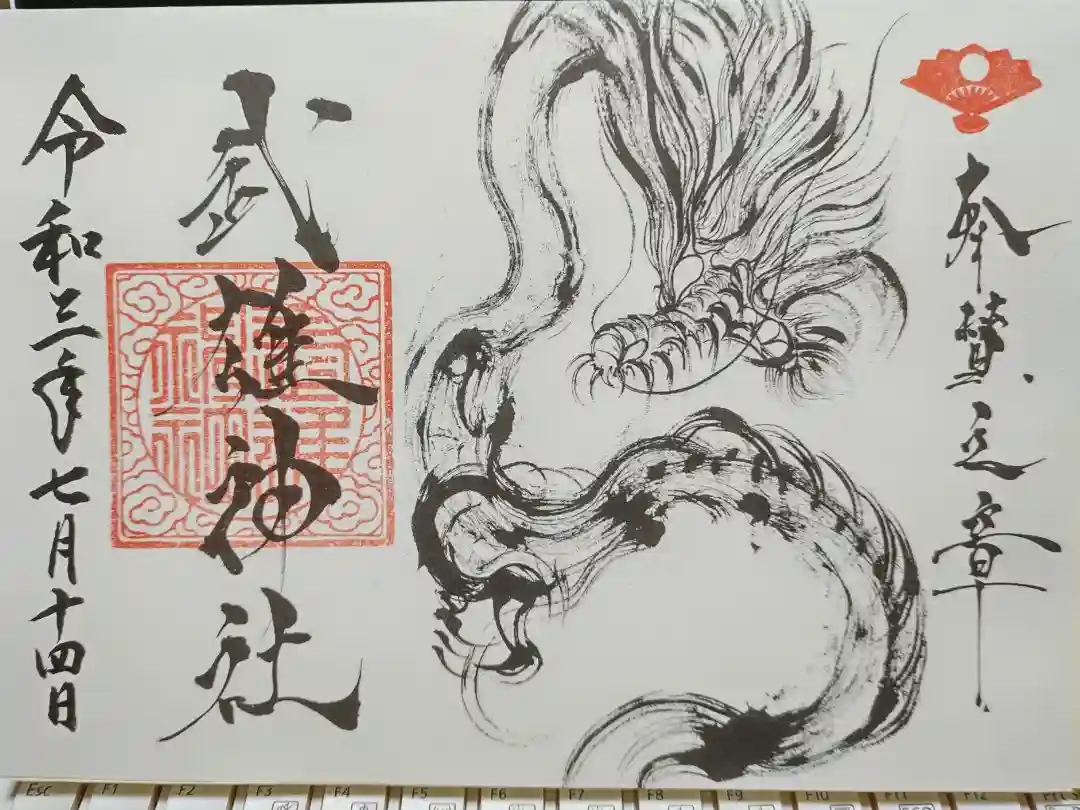 奉賛之章
武雄神社
令和三年七月十四日
Esc F1 F2 F3 F4 F5 F6 F7 F8 F9 F10 F11